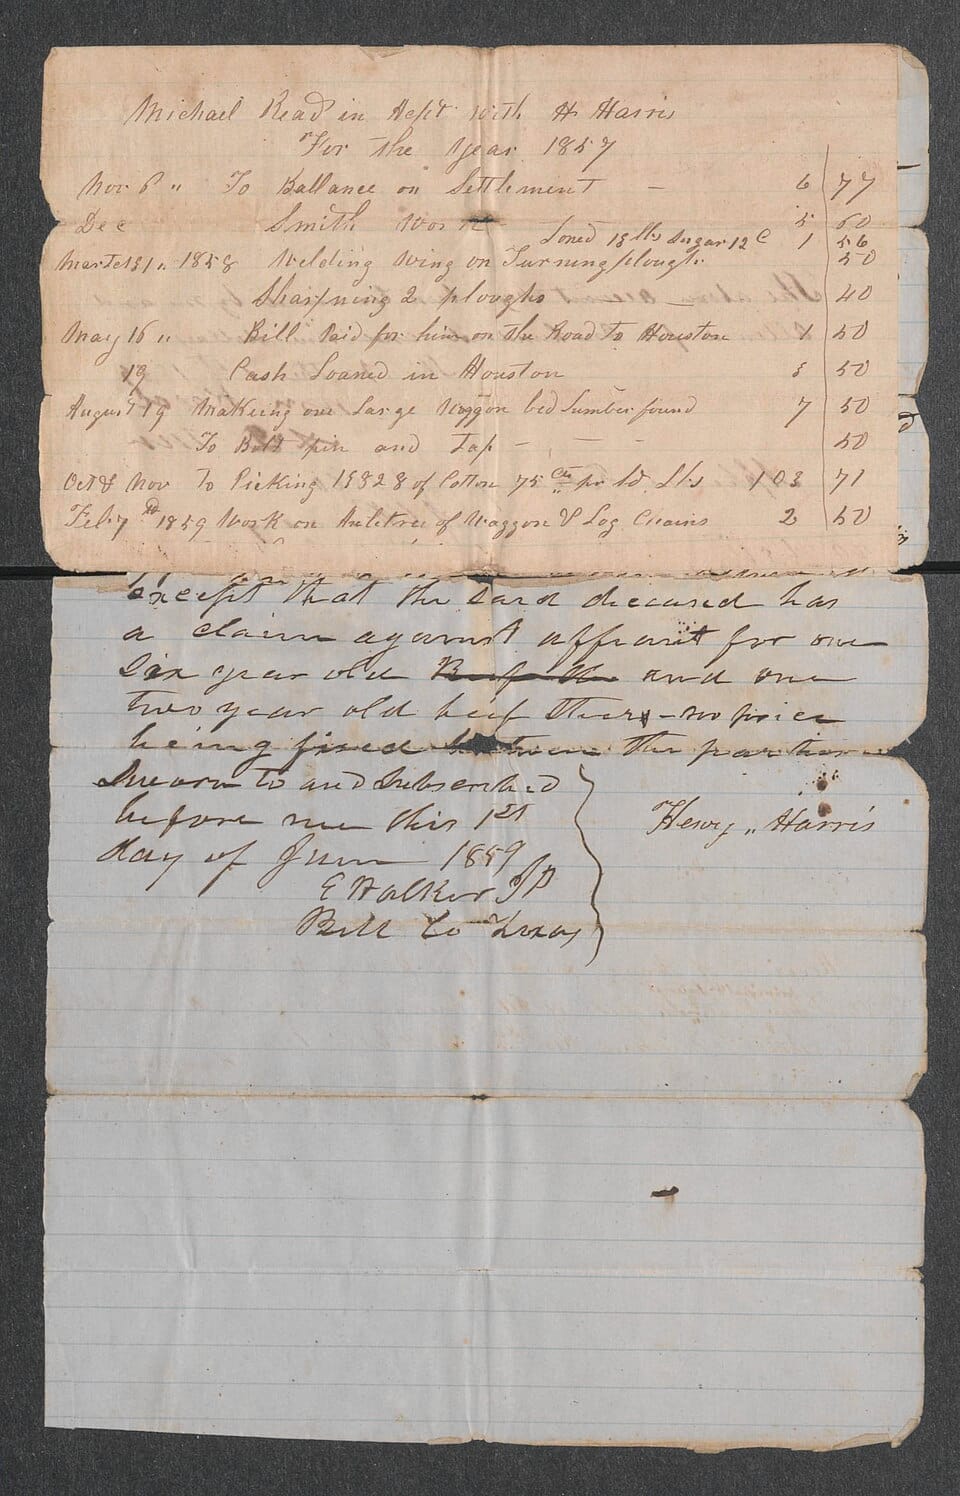 Michael Read in Acpt with H Harris
For the Year 1857
Nov 6 " To Ballance on Settlement — 6 77
Dec Smith Work 5 60
Loned 13 lbs Sugar 12 c 1 56
March 31 " 1858 Welding Wing on Turning plough 50
Sharpning 2 ploughs — 40
May 16 " Bill Paid for him on the Road to Houston 1 50
19 Cash Loaned in Houston 5 50
August 19 Makeing one Large Waggon bed Lumber found 7 50
To Bolt pin and Tap — — — 50
Oct & Nov To Picking 13828 of Cotton 75 cts pr Lbs 103 71
Feb 7th 1859 Work on of Waggon & Log Chains 2 50
except that the said decused has
a claim against affiant for one
Six year old and one
two year old beef Steers – no price
being fixed between the parties
Sworn to and Subscribed
before me this 1st
day of June 1859
Henry " Harris
E Walker JP
Bell Co Texas